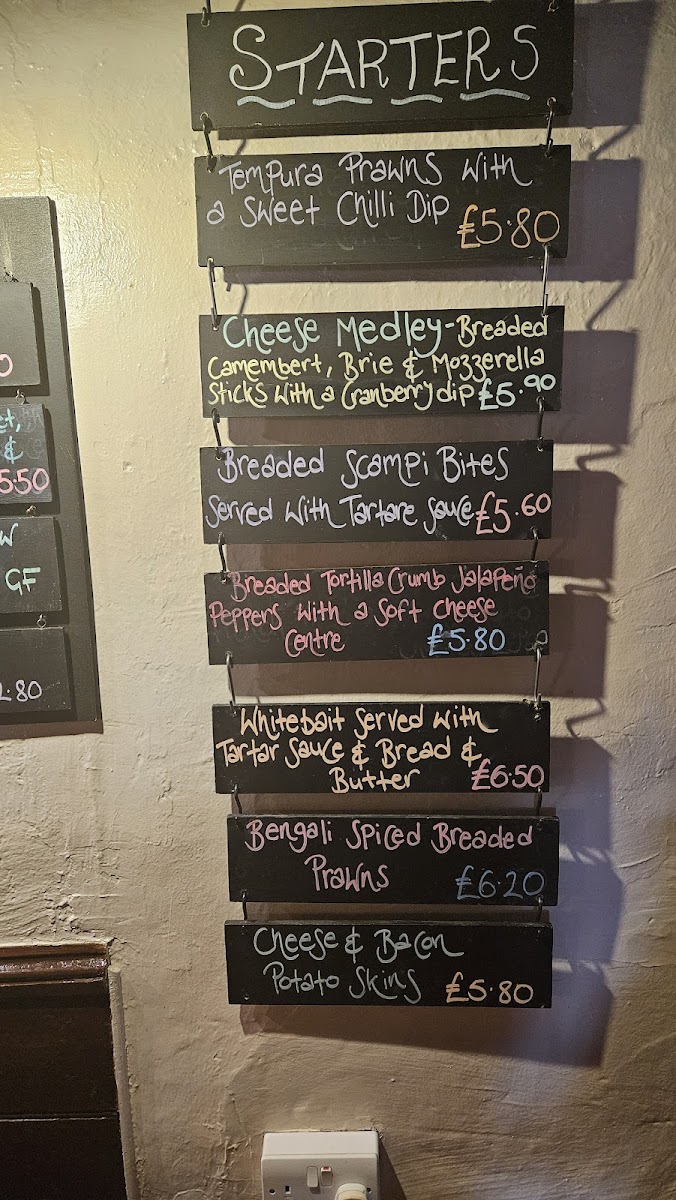 STARTERS
Tempura Prawns with
a Sweet Chilli Dip £5.80
Cheese Medley - Breaded
Camembert, Brie & Mozzerella
Sticks with a Cranberry dip £5.90
Breaded Scampi Bites
Served with Tartare Sauce £5.60
Breaded Tortilla Crumb Jalapeño
Peppers with a soft cheese
Centre £5.80
Whitebait served with
Tartar Sauce & Bread &
Butter £6.50
Bengali Spiced Breaded
Prawns £6.20
Cheese & Bacon
Potato Skins £5.80
&
5.50
GF
2.80